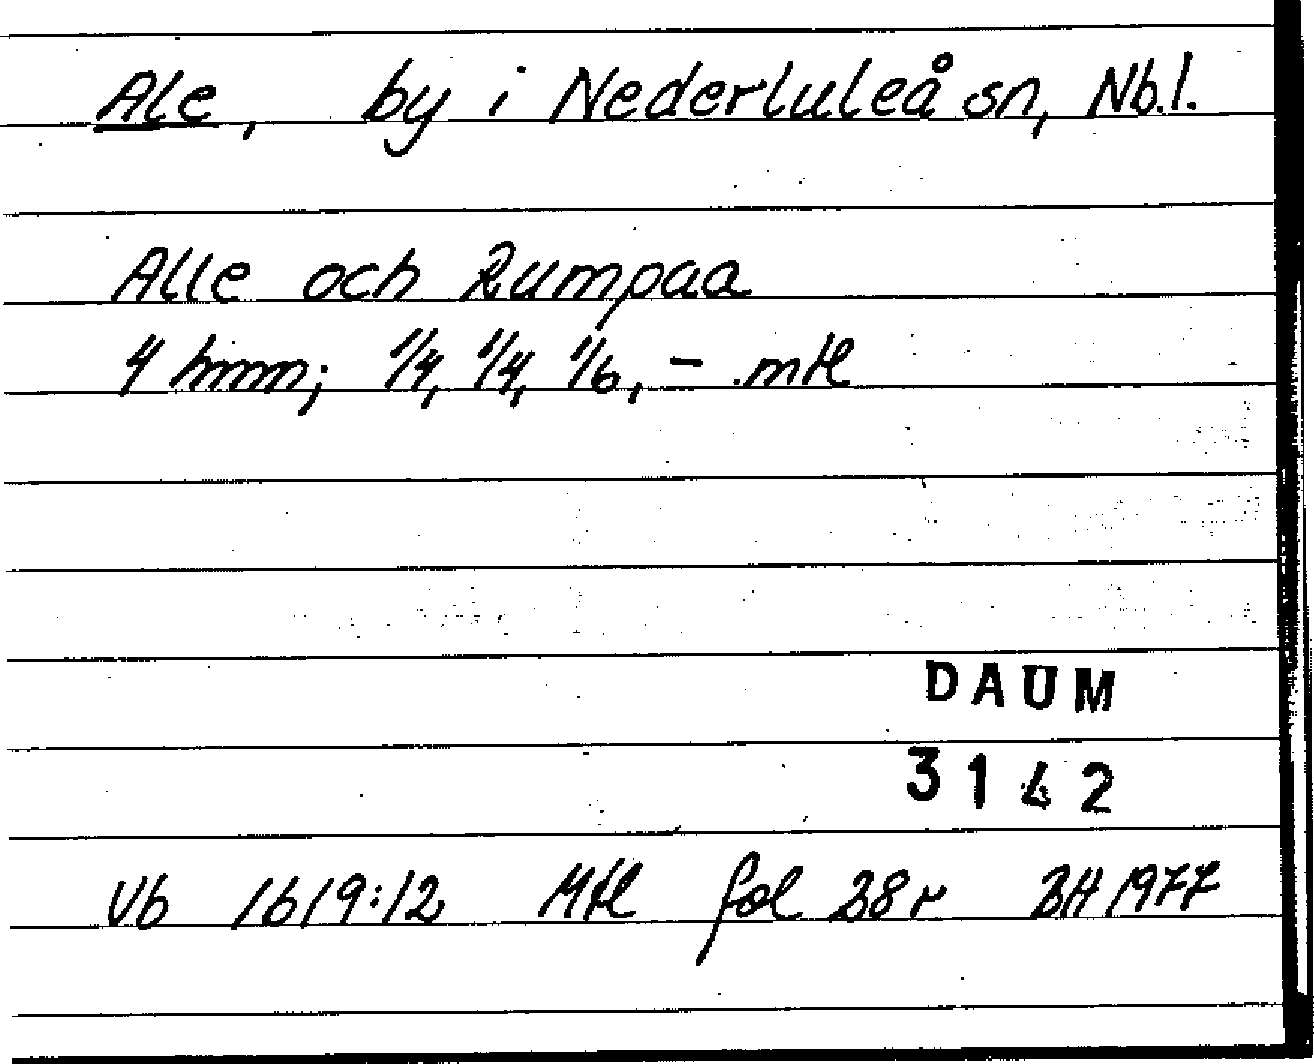 Ale, by i Nederluleå sn, Nb.l.
Alle och Rumpaa
4 hmn; 1/4, 1/4, 1/6, - mtl
DAUM
3142
Vb 1619:12 Mtl fol 38r BH 1977